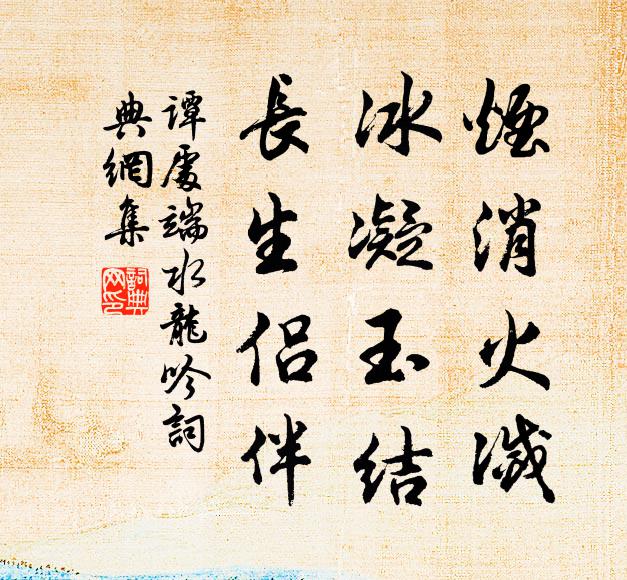 煙消火滅
冰凝玉結
長生侣伴
谭處端水龍吟詞
典網集
詞典网印